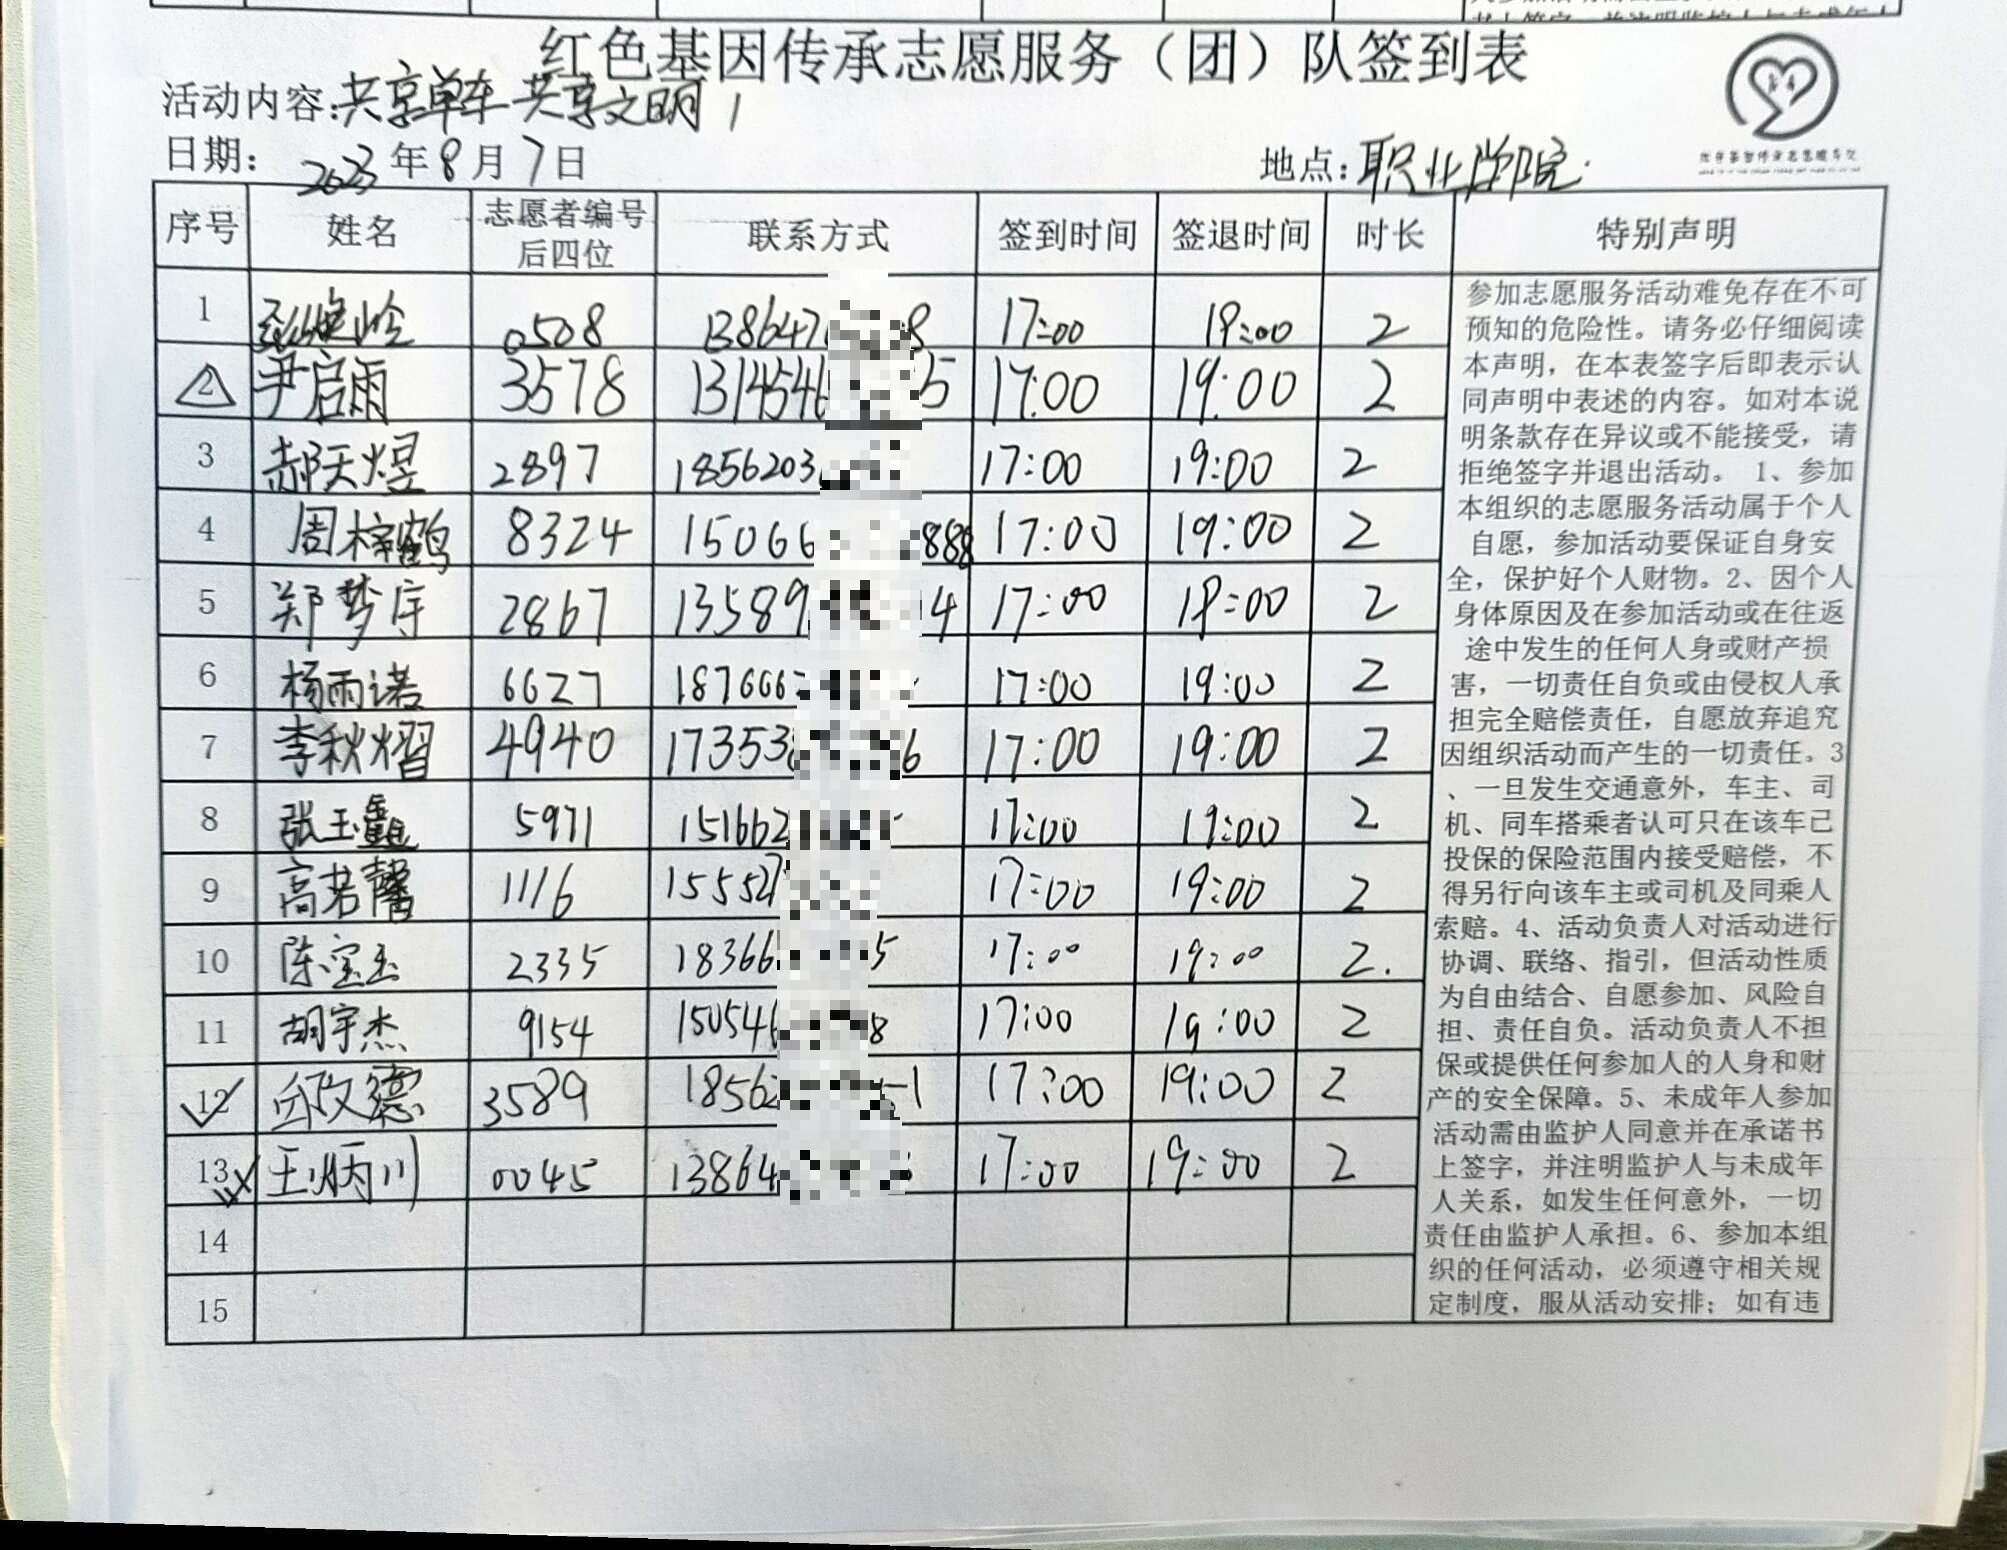 红色基因传承志愿服务（团）队签到表
活动内容:共享单车 共享文明 1
日期: 2023年8月7日 地点:职业学院.
序号 姓名 志愿者编号后四位 联系方式 签到时间 签退时间 时长 特别声明
1 0508 1386471 8 17:00 19:00 2
2 尹启雨 3578 1314546 5 17:00 19:00 2
3 郝天煜 2897 1856203 17:00 19:00 2
4 周梓鹤 8324 15066 888 17:00 19:00 2
5 郑梦宇 2867 13589 14 17:00 19:00 2
6 杨雨诺 6627 187666 17:00 19:00 2
7 李秋熠 4940 173538 6 17:00 19:00 2
8 张玉鑫 5971 151662 17:00 19:00 2
9 高若馨 1116 15552 17:00 19:00 2
10 陈宝玉 2335 18366 5 17:00 19:00 2.
11 胡宇杰 9154 150546 8 17:00 19:00 2
12 邱政德 3589 18562 1 17:00 19:00 2
13 王炳川 0045 13864 17:00 19:00 2
14
15
参加志愿服务活动难免存在不可
预知的危险性。请务必仔细阅读
本声明，在本表签字后即表示认
同声明中表述的内容。如对本说
明条款存在异议或不能接受，请
拒绝签字并退出活动。 1、参加
本组织的志愿服务活动属于个人
自愿，参加活动要保证自身安
全，保护好个人财物。2、因个人
身体原因及在参加活动或在往返
途中发生的任何人身或财产损
害，一切责任自负或由侵权人承
担完全赔偿责任，自愿放弃追究
因组织活动而产生的一切责任。3
、一旦发生交通意外，车主、司
机、同车搭乘者认可只在该车已
投保的保险范围内接受赔偿，不
得另行向该车主或司机及同乘人
索赔。4、活动负责人对活动进行
协调、联络、指引，但活动性质
为自由结合、自愿参加、风险自
担、责任自负。活动负责人不担
保或提供任何参加人的人身和财
产的安全保障。5、未成年人参加
活动需由监护人同意并在承诺书
上签字，并注明监护人与未成年
人关系，如发生任何意外，一切
责任由监护人承担。6、参加本组
织的任何活动，必须遵守相关规
定制度，服从活动安排；如有违